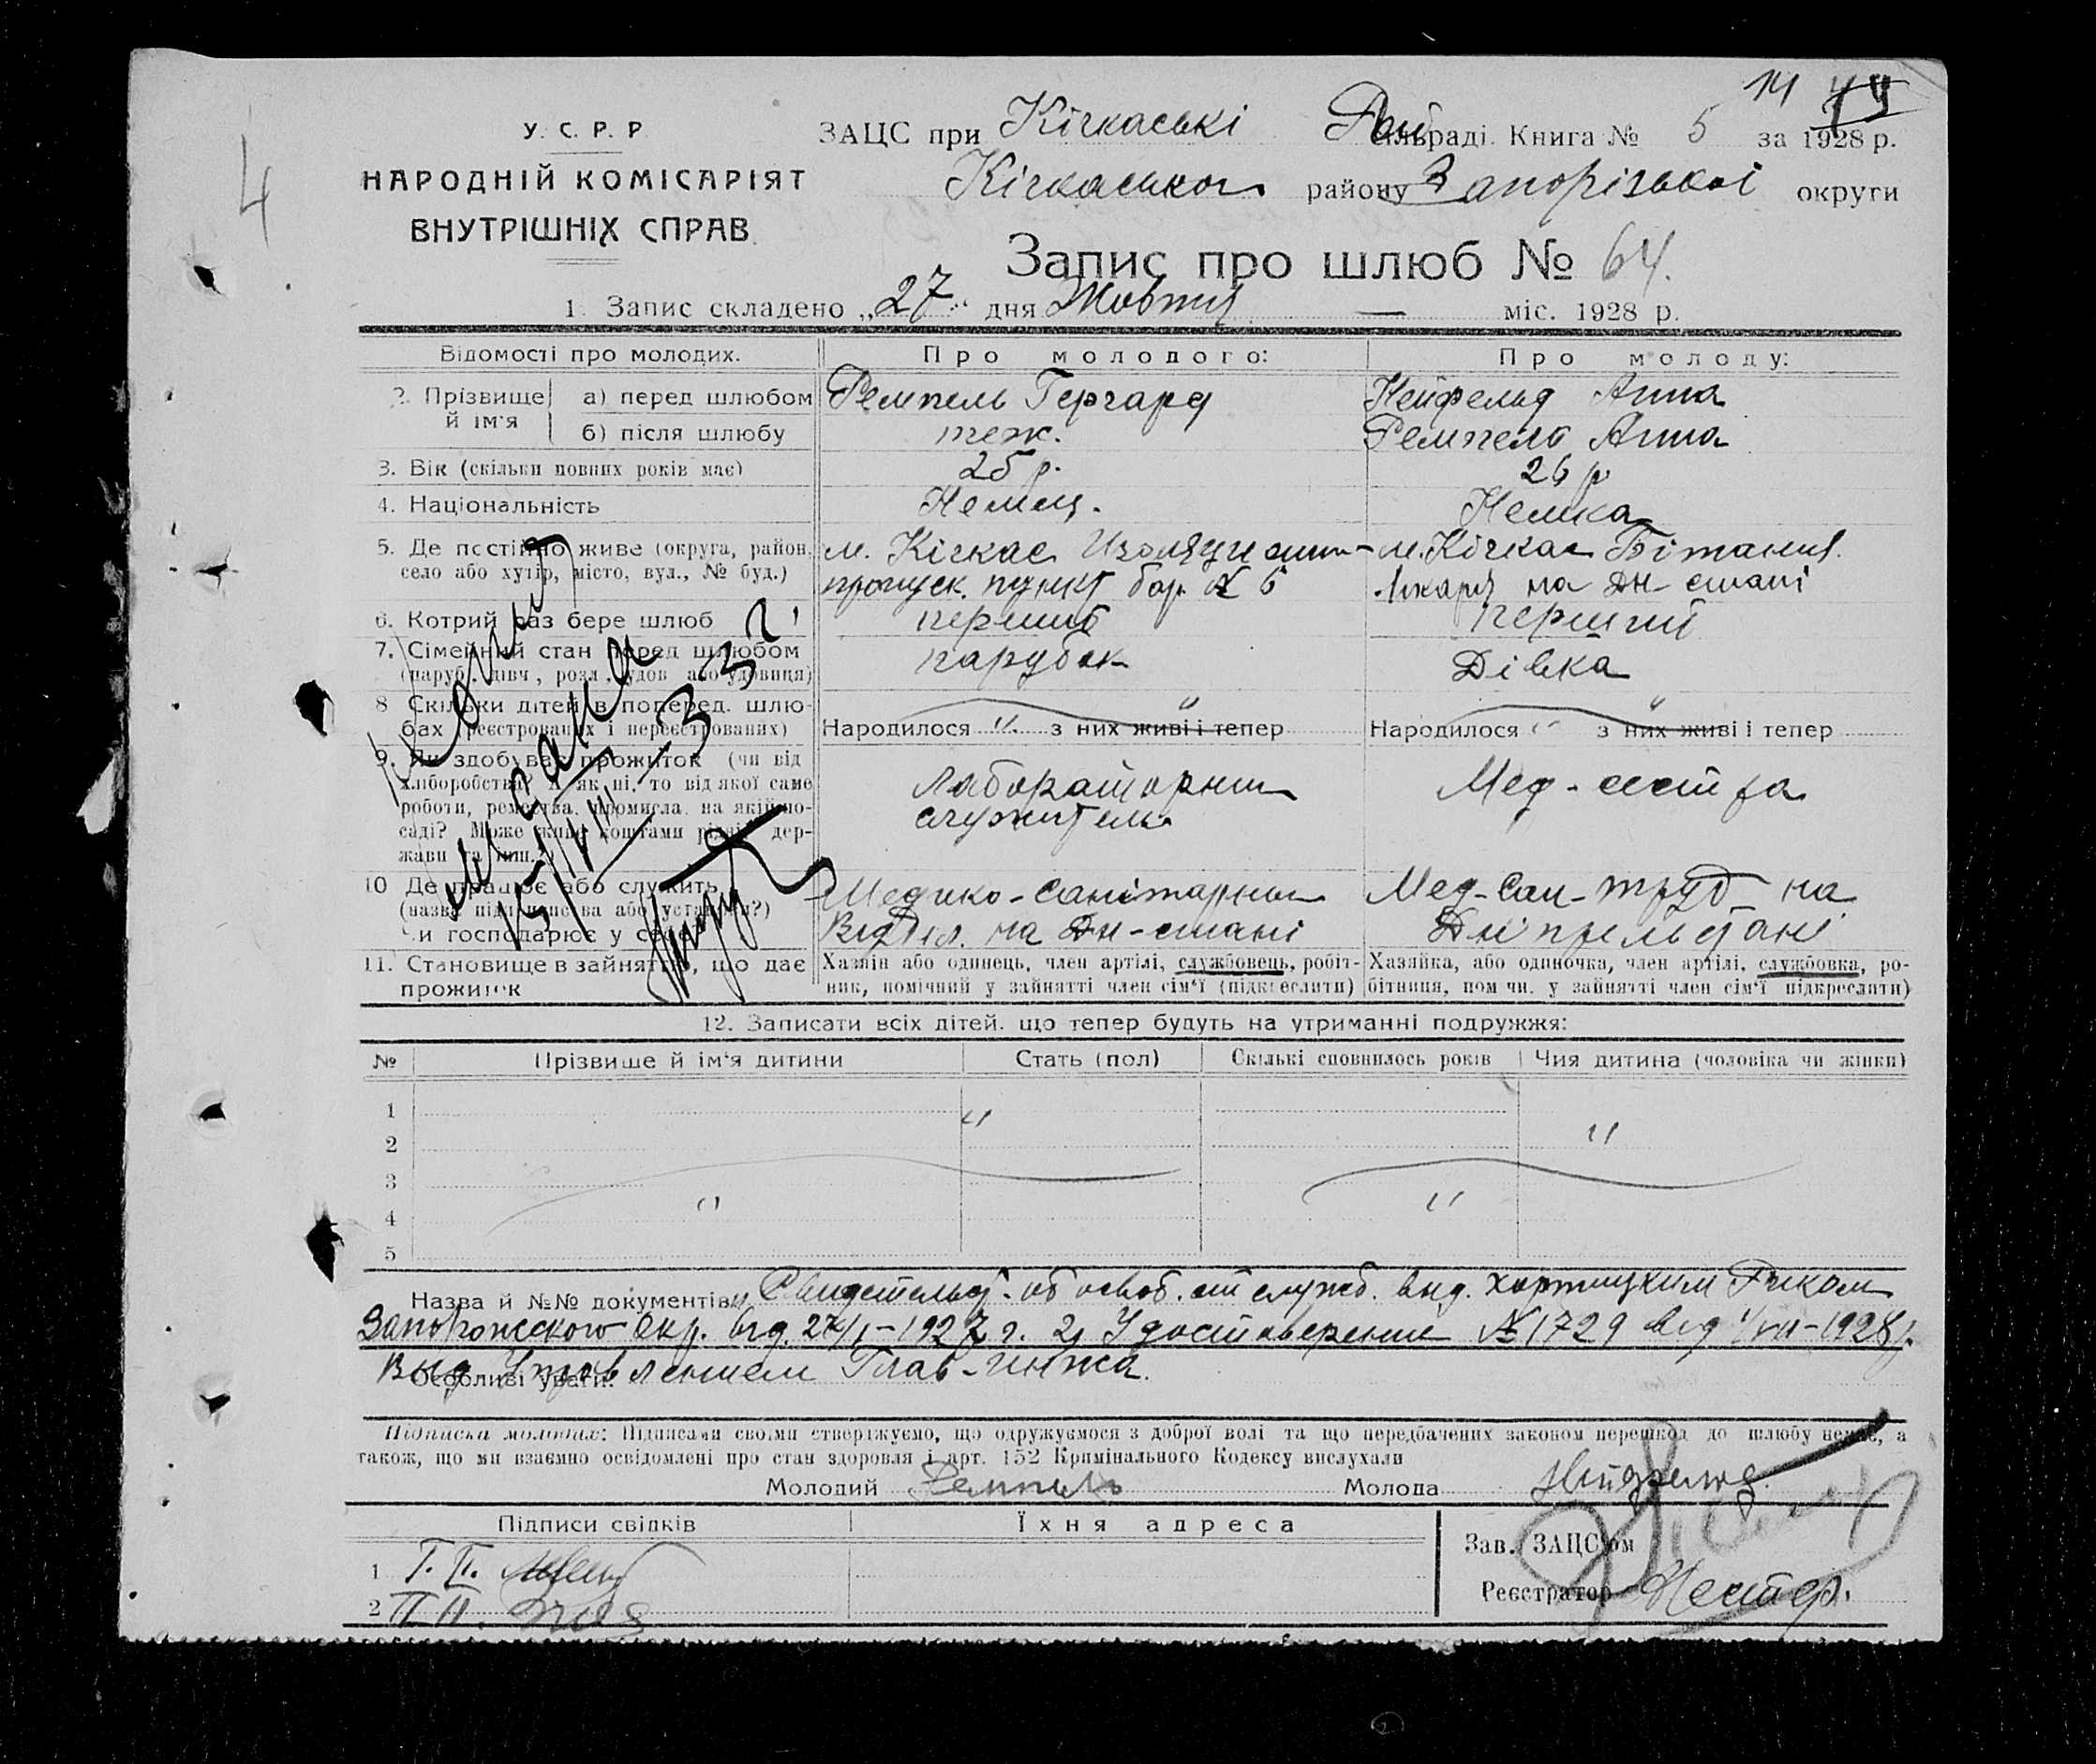 14 44
4
У. С. Р. Р.
НАРОДНІЙ КОМІСАРІЯТ
ВНУТРІШНІХ СПРАВ.
ЗАЦС при Кічкаські Рай сільраді. Книга № 5 за 1928 р.
Кічкаського району Запорізької округи
Запис про шлюб № 64.
1. Запис складено „27" дня Жовтня — міс. 1928 р.
Відомості про молодих. Про молодого: Про молоду:
2. Прізвище й ім'я а) перед шлюбом Ремпель Гергард Нейфельд Анна
б) після шлюбу теж. Ремпель Анна
3. Вік (скільки повних років має) 25 р. 26 р
4. Національність Немец. Немка
5. Де постійно живе (округа, район, м. Кічкас Изоляционн- м. Кічкас Бітания.
село або хутір, місто, вул., № буд.) пропуск. пункт бар. № 6 Лікарня на Дн-стані
6. Котрий раз бере шлюб перший перший
7. Сімейний стан перед шлюбом парубок Дівка
(паруб., дівч., розл., удов. або удовиця)
8. Скільки дітей в поперед. шлю-
бах (реєстрованих і нереєстрованих) Народилося " з них живі і тепер " Народилося " з них живі і тепер "
9. Як здобуває прожиток (чи від
хліборобства? А як ні, то від якої саме Лабораторный Мед-сестра
роботи, ремества, промисла, на якій по- служитель
саді? Може живе коштами рідні, дер-
жави та інш.?)
10. Де працює або служить Медико-санітарный Мед-Сан-труд на
(назва підприємства або установи?)
Чи господарює у селі? Відділ. на Дн-стані Дніпрельстані
11. Становище в занятті, що дає Хазяїн або одинець, член артілі, службовець, робіт- Хазяйка, або одиночка, член артілі, службовка, ро-
прожиток ник, помічний у занятті член сім'ї (підкреслити) бітниця, помічн. у занятті член сім'ї (підкреслити)
12. Записати всіх дітей, що тепер будуть на утриманні подружжя:
№ Прізвище й ім'я дитини Стать (пол) Скількі сповнилось років Чия дитина (чоловіка чи жінки)
1 "
2 "
3
4 " "
5
Назва й №№ документів: Свидетельст. об освоб. от служб. выд. хортицким Риком
Запорожского Окр. від. 27/I-1927 г. 2) Удостоверение №1729 від 1/VII-1928 р.
Выд Управлением Глав-инжа.
Особливі уваги:
Підписка молодих: Підписами своїми стверджуємо, що одружуємося з доброї волі та що передбачених законом перешкод до шлюбу немає, а
також, що ми взаємно освідомлені про стан здоровля і арт. 152 Кримінального Кодексу вислухали
Молодий Ремпель Молода Нейфельд.
Підписи свідків Їхня адреса
Зав. ЗАЦС'ом
1 Г. П.
Реєстратор
2 П П.